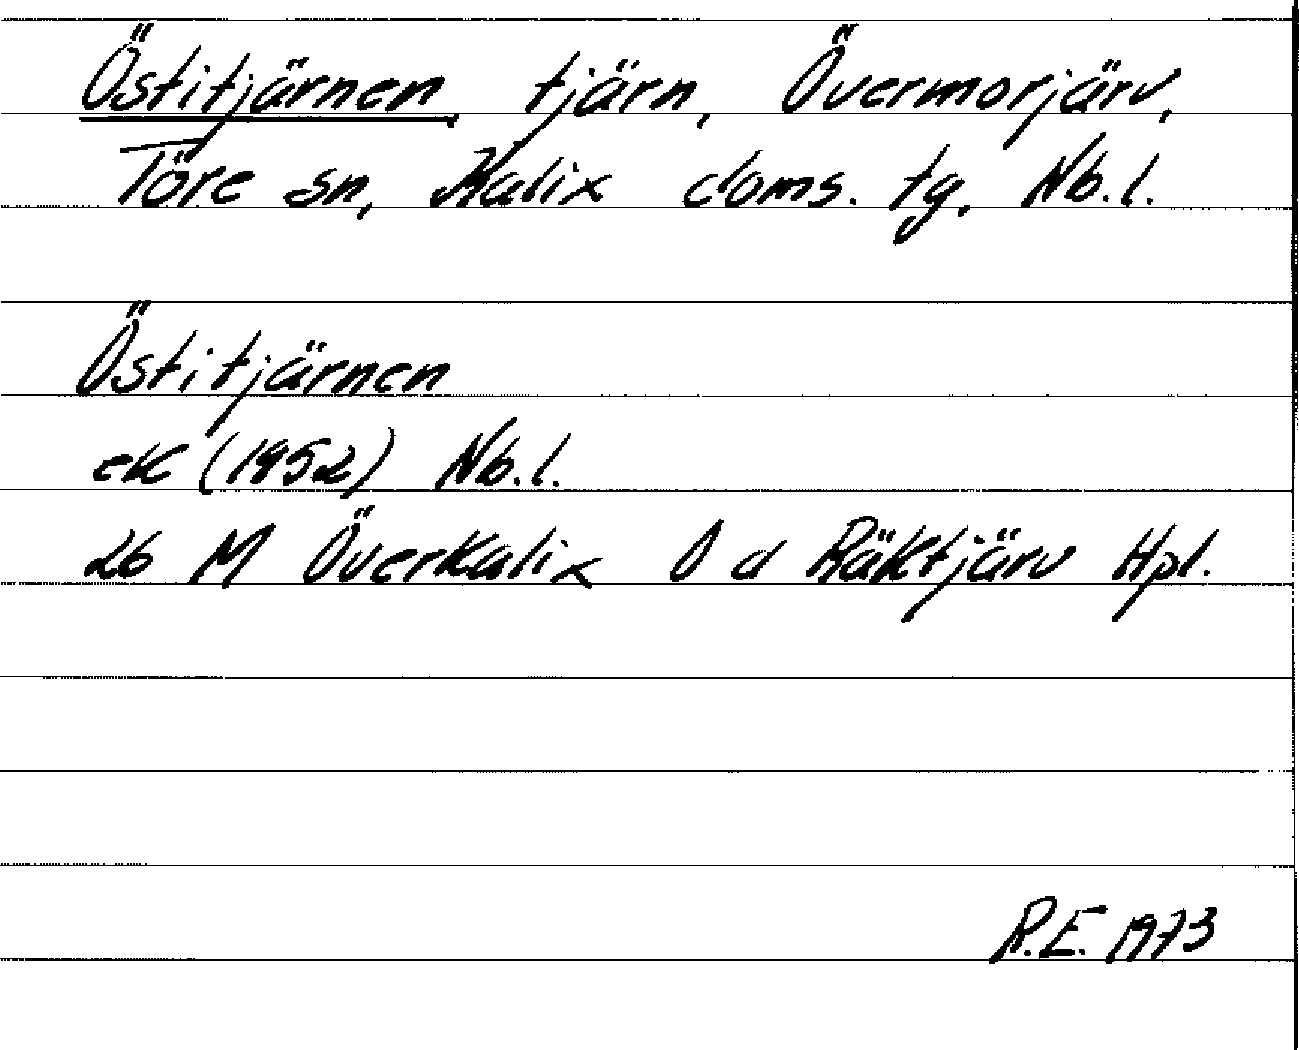 Östitjärnen, tjärn, Övermorjärv,
Töre sn, Kalix doms. tg, Nb.l.
Östitjärnen
ek (1952) Nb.l.
26 M Överkalix 0 d Räktjärv Hpl.
R.E. 1973